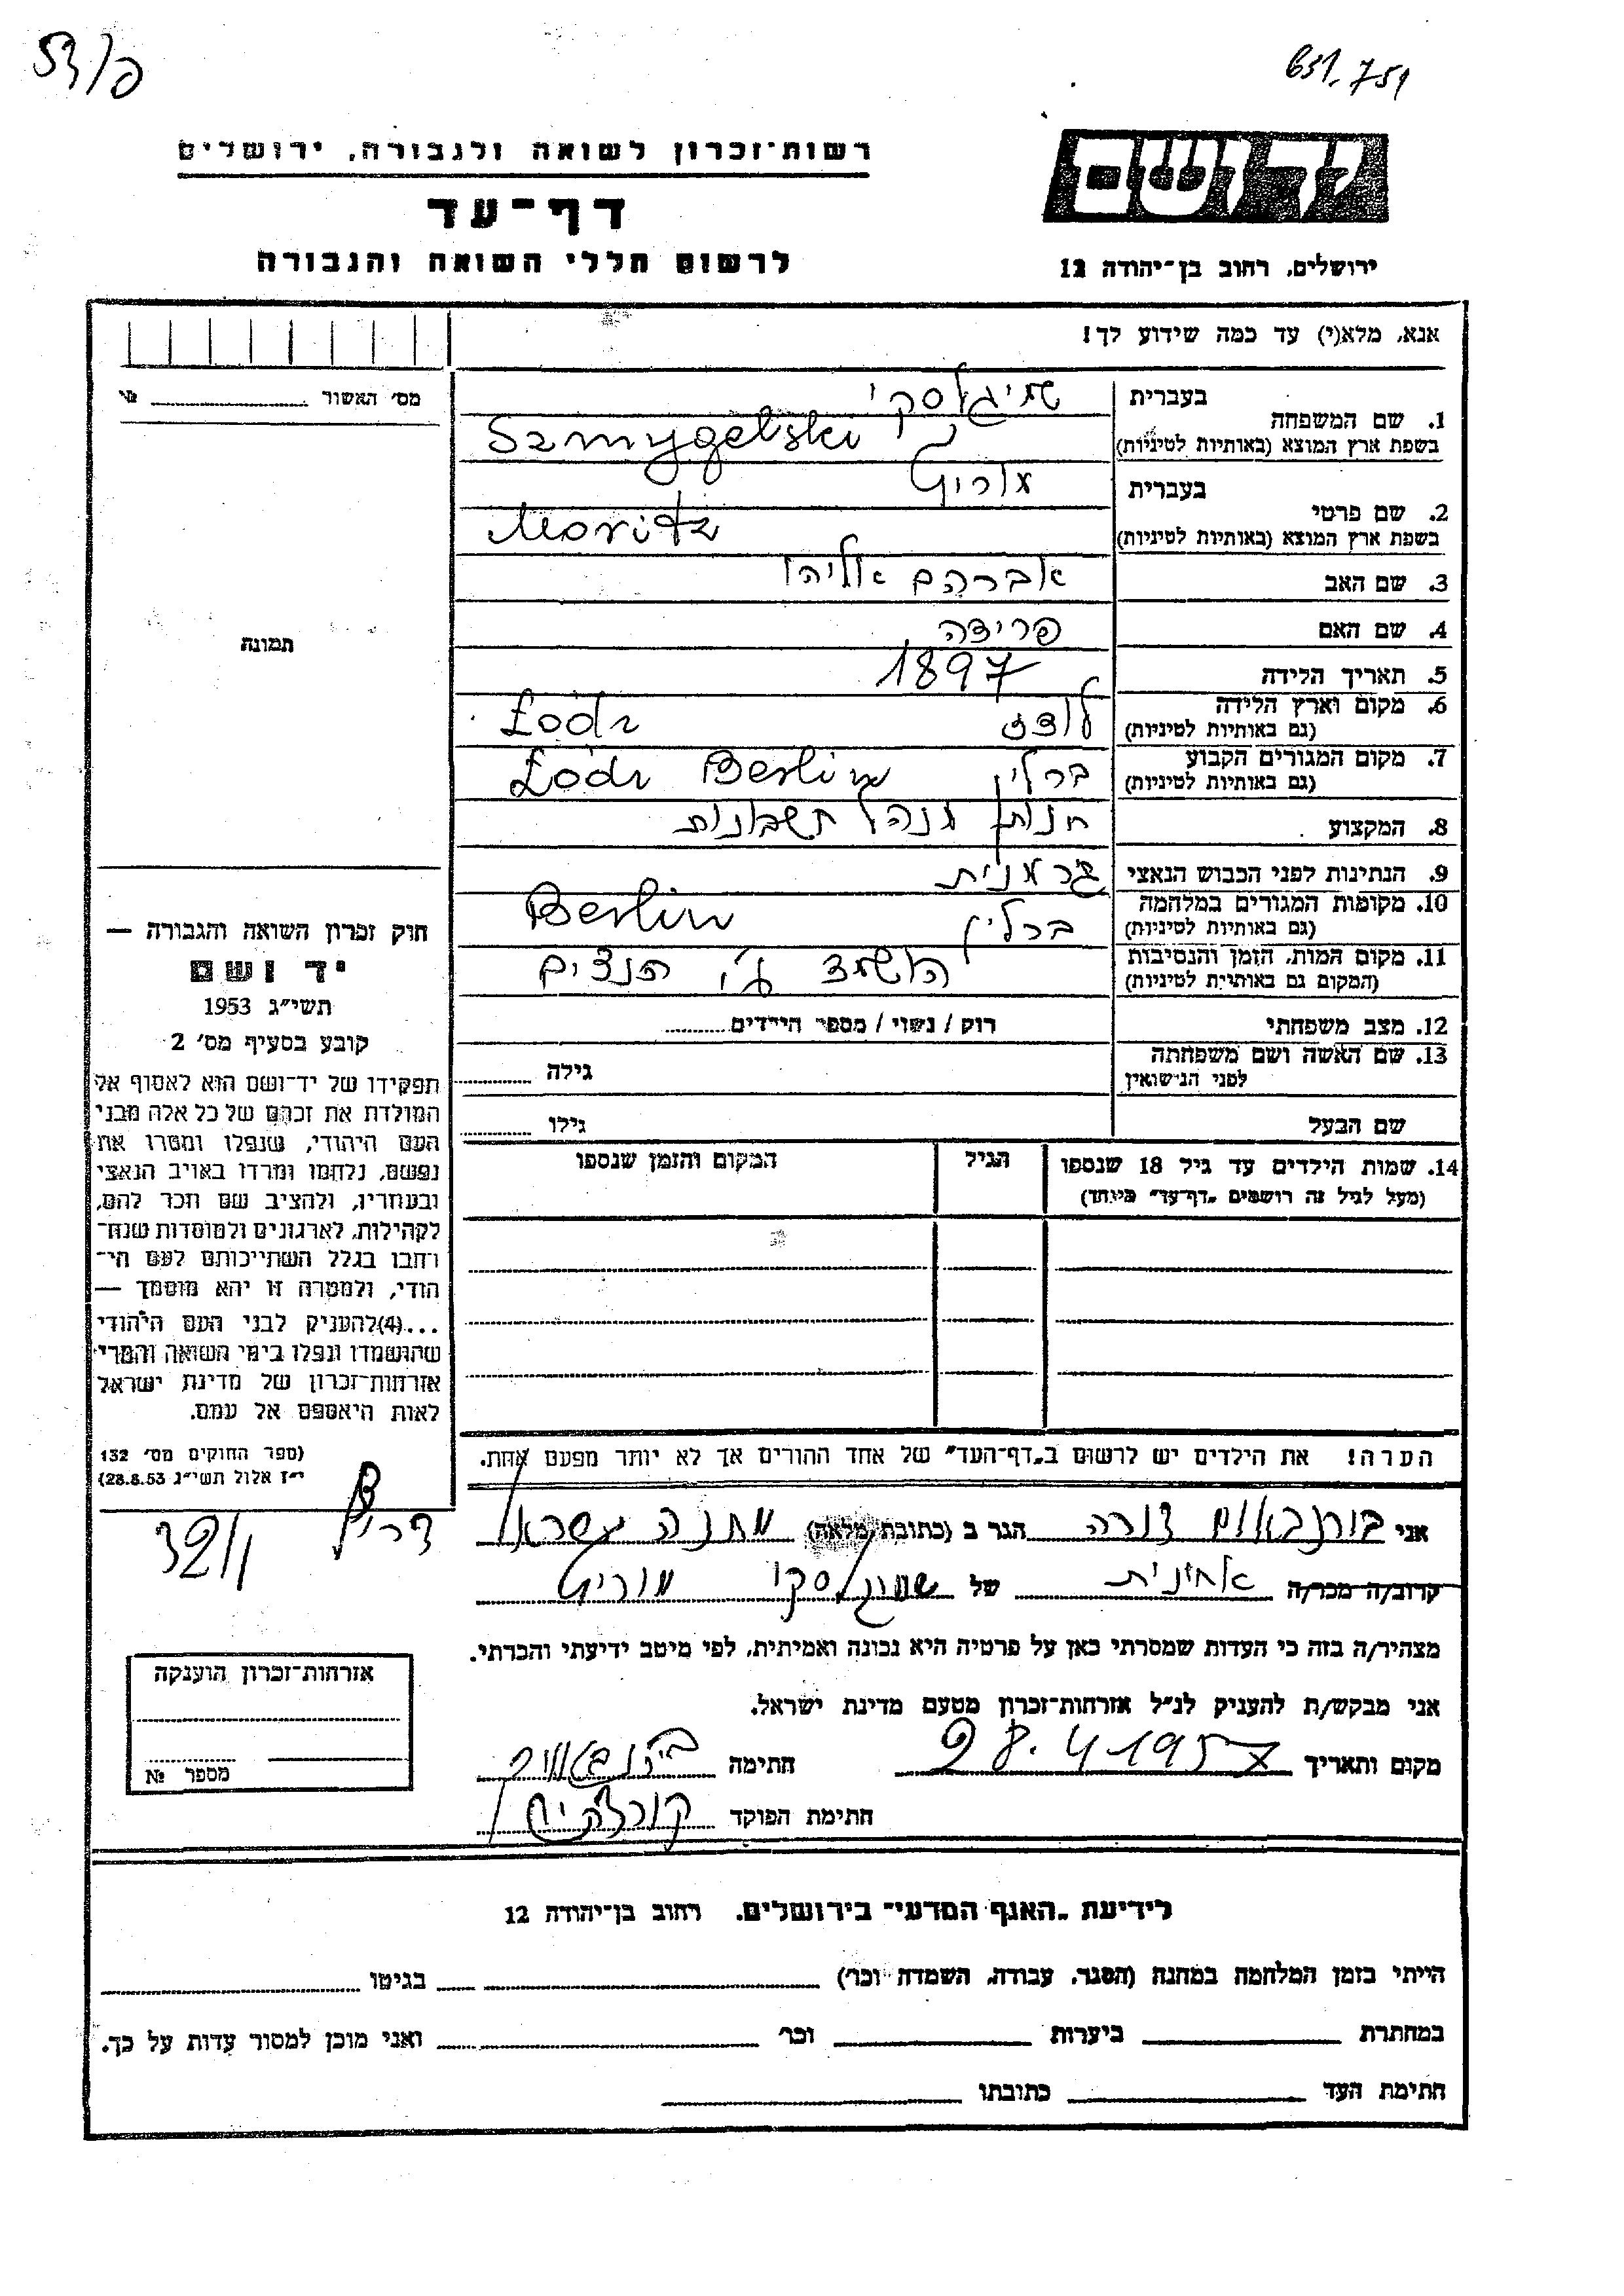 53/פ
651.751
יד ושם
רשות־זכרון לשואה ולגבורה, ירושלים
דף־עד
לרשום חללי השואה והגבורה
ירושלים, רחוב בן־יהודה 12
אנא, מלא(י) עד כמה שידוע לך!
מס׳ האשור №
1. שם המשפחה
בעברית שמיגלסקי
בשפת ארץ המוצא (באותיות לטיניות) Szmygelski
2. שם פרטי
בעברית מוריץ
בשפת ארץ המוצא (באותיות לטיניות) Moritz
3. שם האב אברהם אליהו
4. שם האם פרידה
5. תאריך הלידה 1897
6. מקום וארץ הלידה לודז Łodz
(גם באותיות לטיניות)
7. מקום המגורים הקבוע ברלין Berlin Łódz
(גם באותיות לטיניות)
8. המקצוע מנהל חשבונות
9. הנתינות לפני הכבוש הנאצי גרמנית
10. מקומות המגורים במלחמה ברלין Berlin
(גם באותיות לטיניות)
11. מקום המות, הזמן והנסיבות הושמד ע״י הנצים
(המקום גם באותיות לטיניות)
12. מצב משפחתי רוק / נשוי / מספר הילדים
13. שם האשה ושם משפחתה גילה
לפני הנישואין
שם הבעל גילו
14. שמות הילדים עד גיל 18 שנספו הגיל המקום והזמן שנספו
(מעל לגיל זה רושמים „דף־עד״ מיוחד)
הערה! את הילדים יש לרשום ב„דף־העד״ של אחד ההורים אך לא יותר מפעם אחת.
תמונה
חוק זכרון השואה והגבורה —
יד ושם
תשי״ג 1953
קובע בסעיף מס׳ 2
תפקידו של יד־ושם הוא לאסוף אל
המולדת את זכרם של כל אלה מבני
העם היהודי, שנפלו ומסרו את
נפשם, נלחמו ומרדו באויב הנאצי
ובעוזריו, ולהציב שם וזכר להם,
לקהילות, לארגונים ולמוסדות שנח־
רחבו בגלל השתייכותם לעם הי־
הודי, ולמטרה זו יהא מוסמך —
...(4)להעניק לבני העם היהודי
שהושמדו ונפלו בימי השואה והמרי
אזרחות־זכרון של מדינת ישראל
לאות היאספם אל עמם.
(ספר החוקים מס׳ 132
י״ז אלול תשי״ג 28.8.53)
32/1
אני בורנבאום דורה הגר ב (כתובת מלאה)
קרוב/ה מכר/ה אחינית של שמיגלסקי מוריץ
מצהיר/ה בזה כי העדות שמסרתי כאן על פרטיה היא נכונה ואמיתית, לפי מיטב ידיעתי והכרתי.
אני מבקש/ת להעניק לנ״ל אזרחות־זכרון מטעם מדינת ישראל.
מקום ותאריך 28.4.1957 חתימה
חתימת הפוקד
אזרחות־זכרון הוענקה
מספר №
לידיעת „האגף המדעי״ בירושלים, רחוב בן־יהודה 12
הייתי בזמן המלחמה במחנה (הסגר, עבודה, השמדה וכר׳) בגיטו
במחתרת ביערות וכר׳ ואני מוכן למסור עדות על כך.
חתימת העד כתובתו